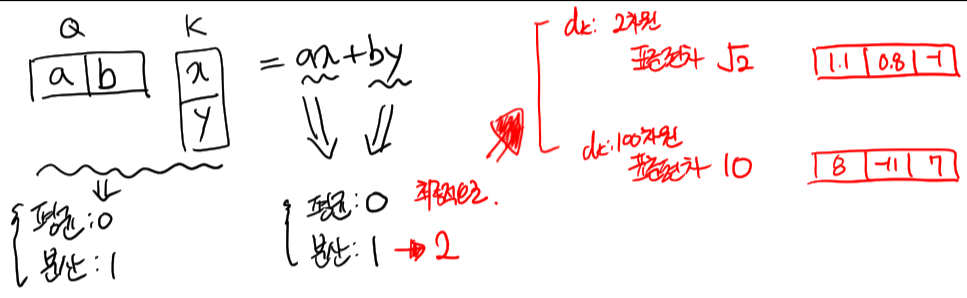 Q K
a b x = ax+by
y
평균:0
분산:1
평균:0 최종적으로.
분산:1 → 2
dk: 2차원
표준편차 √2
1.1 0.8 -1
dk:100차원
표준편차 10
8 -11 7